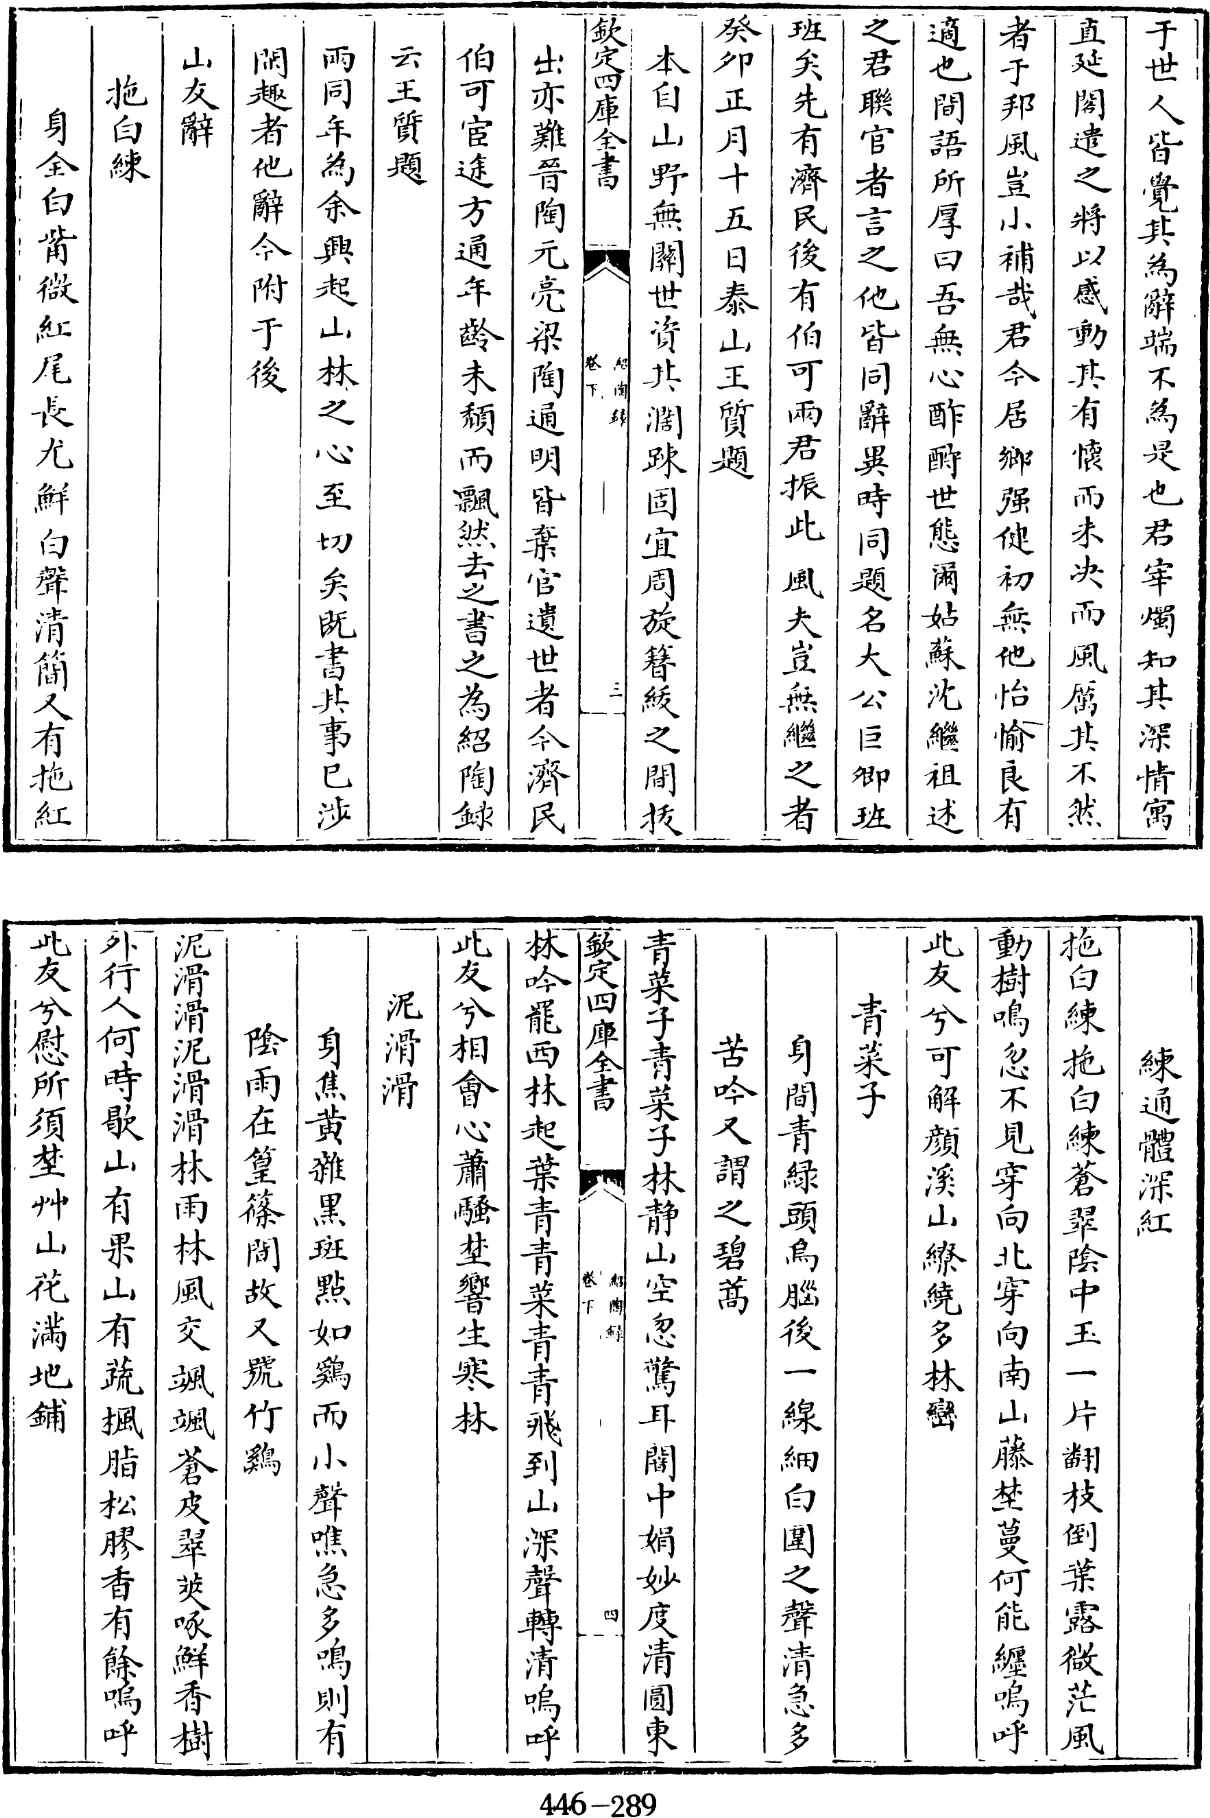 于世人皆覺其為辭端不為是也君宰燭知其深情寓
直延閣遣之將以感動其有懷而未決而風厲其不然
者于邦風豈小補哉君今居鄉强健初無他怡愉良有
適也間語所厚曰吾無心酢酬世態爾姑蘇沈繼祖述
之君聯官者言之他皆同辭異時同題名大公巨卿班
班矣先有濟民後有伯可兩君振此風夫豈無繼之者
癸卯正月十五日泰山王質題
本自山野無關世資其濶踈固宜周旋簪紱之間拔
欽定四庫全書
紹陶録
卷下
三
出亦難晉陶元亮梁陶通明皆棄官遺世者今濟民
伯可宦途方通年齡未頽而飄然去之書之為紹陶録
云王質題
兩同年為余興起山林之心至切矣既書其事已涉
閑趣者他辭今附于後
山友辭
拖白練
身全白觜微紅尾長尤鮮白聲清簡又有拖紅
練通體深紅
拖白練拖白練蒼翠陰中玉一片翻枝倒葉露微茫風
動樹鳴忽不見穿向北穿向南山藤埜蔓何能纒嗚呼
此友兮可解顔溪山繚繞多林巒
青菜子
身間青緑頭烏腦後一線細白圍之聲清急多
苦吟又謂之碧蒿
青菜子青菜子林静山空忽驚耳閣中娟妙度清圓東
欽定四庫全書
紹陶録
卷下
四
林吟罷西林起葉青青菜青青飛到山深聲轉清嗚呼
此友兮相會心蕭騷埜響生寒林
泥滑滑
身焦黄雜黑斑點如鷄而小聲噍急多鳴則有
陰雨在篁篠間故又號竹鷄
泥滑滑泥滑滑林雨林風交颯颯蒼皮翠莢啄鮮香樹
外行人何時歇山有果山有蔬楓脂松膠香有餘嗚呼
此友兮慰所須埜艸山花滿地鋪
446-289